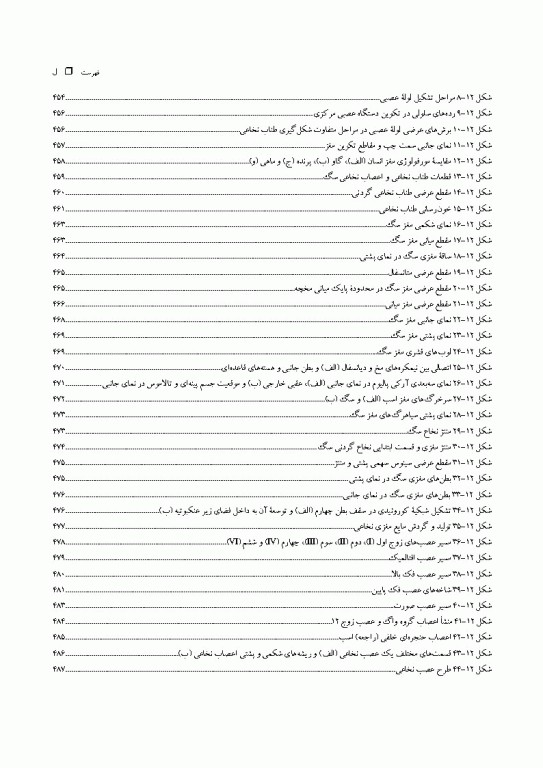 فهرست ❐ ل
شکل ۱۲-۸ مراحل تشکیل لولهٔ عصبی ۴۵۴
شکل ۱۲-۹ رده‌های سلولی در تکوین دستگاه عصبی مرکزی ۴۵۶
شکل ۱۲-۱۰ برش‌های عرضی لولهٔ عصبی در مراحل متفاوت شکل‌گیری طناب نخاعی ۴۵۶
شکل ۱۲-۱۱ نمای جانبی سمت چپ و مقاطع تکوین مغز ۴۵۷
شکل ۱۲-۱۲ مقایسهٔ مورفولوژی مغز انسان (الف)، گاو (ب)، پرنده (ج) و ماهی (و) ۴۵۸
شکل ۱۲-۱۳ قطعات طناب نخاعی و اعصاب نخاعی سگ ۴۵۹
شکل ۱۲-۱۴ مقطع عرضی طناب نخاعی گردنی ۴۶۰
شکل ۱۲-۱۵ خون‌رسانی طناب نخاعی ۴۶۱
شکل ۱۲-۱۶ نمای شکمی مغز سگ ۴۶۳
شکل ۱۲-۱۷ مقطع میانی مغز سگ ۴۶۳
شکل ۱۲-۱۸ ساقهٔ مغزی سگ در نمای پشتی ۴۶۴
شکل ۱۲-۱۹ مقطع عرضی متانسفال ۴۶۵
شکل ۱۲-۲۰ مقطع عرضی مغز سگ در محدودهٔ پایک میانی مخچه ۴۶۵
شکل ۱۲-۲۱ مقطع عرضی مغز میانی ۴۶۶
شکل ۱۲-۲۲ نمای جانبی مغز سگ ۴۶۸
شکل ۱۲-۲۳ نمای پشتی مغز سگ ۴۶۹
شکل ۱۲-۲۴ لوب‌های قشری مغز سگ ۴۶۹
شکل ۱۲-۲۵ اتصالی بین نیمکره‌های مخ و دیانسفال (الف) و بطن جانبی و هسته‌های قاعده‌ای ۴۷۰
شکل ۱۲-۲۶ نمای سه‌بعدی آرکی پالیوم در نمای جانبی (الف)، عقبی خارجی (ب) و موقعیت جسم پینه‌ای و تالاموس در نمای جانبی ۴۷۱
شکل ۱۲-۲۷ سرخرگ‌های مغز اسب (الف) و سگ (ب) ۴۷۲
شکل ۱۲-۲۸ نمای پشتی سیاهرگ‌های مغز سگ ۴۷۳
شکل ۱۲-۲۹ مننژ نخاع سگ ۴۷۳
شکل ۱۲-۳۰ مننژ مغزی و قسمت ابتدایی نخاع گردنی سگ ۴۷۴
شکل ۱۲-۳۱ مقطع عرضی سینوس سهمی پشتی و مننژ ۴۷۵
شکل ۱۲-۳۲ بطن‌های مغزی سگ در نمای پشتی ۴۷۵
شکل ۱۲-۳۳ بطن‌های مغزی سگ در نمای جانبی ۴۷۶
شکل ۱۲-۳۴ تشکیل شبکیهٔ کوروئیدی در سقف بطن چهارم (الف) و توسعهٔ آن به داخل فضای زیر عنکبوتیه (ب) ۴۷۶
شکل ۱۲-۳۵ تولید و گردش مایع مغزی نخاعی ۴۷۷
شکل ۱۲-۳۶ مسیر عصب‌های زوج اول (I)، دوم (II)، سوم (III)، چهارم (IV) و ششم (VI) ۴۷۸
شکل ۱۲-۳۷ مسیر عصب افتالمیک ۴۷۹
شکل ۱۲-۳۸ مسیر عصب فک بالا ۴۸۰
شکل ۱۲-۳۹ شاخه‌های عصب فک پایین ۴۸۱
شکل ۱۲-۴۰ مسیر عصب صورت ۴۸۳
شکل ۱۲-۴۱ منشأ اعصاب گروه واگ و عصب زوج ۱۲ ۴۸۴
شکل ۱۲-۴۲ اعصاب حنجره‌ای خلفی (راجعه) اسب ۴۸۵
شکل ۱۲-۴۳ قسمت‌های مختلف یک عصب نخاعی (الف) و ریشه‌های شکمی و پشتی اعصاب نخاعی (ب) ۴۸۶
شکل ۱۲-۴۴ طرح عصب نخاعی ۴۸۷